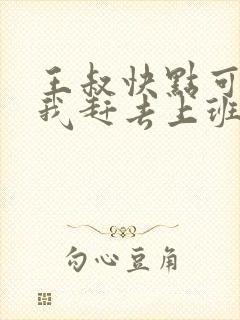 王叔快點可
我赶去上班
勾心豆角